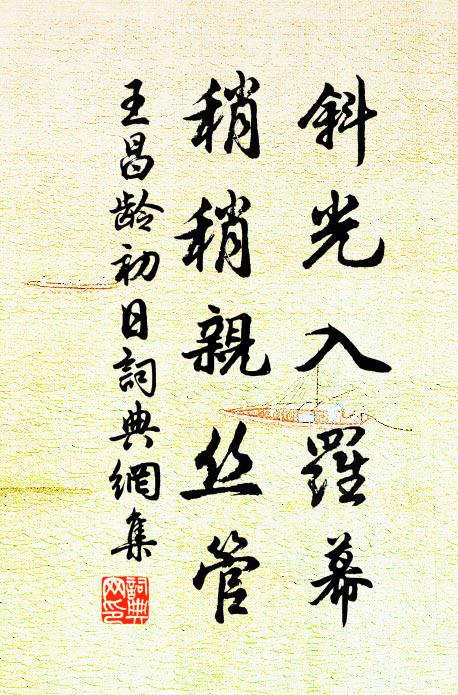 斜光入羅幕
稍稍親丝管
王昌龄初日詞典網集
詞典网印